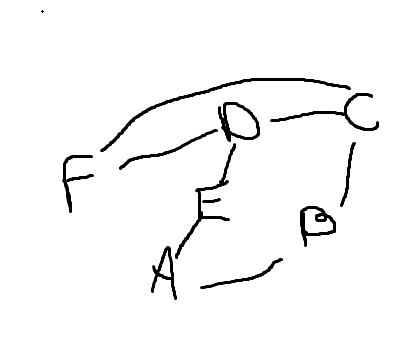 D C
F
E
B
A